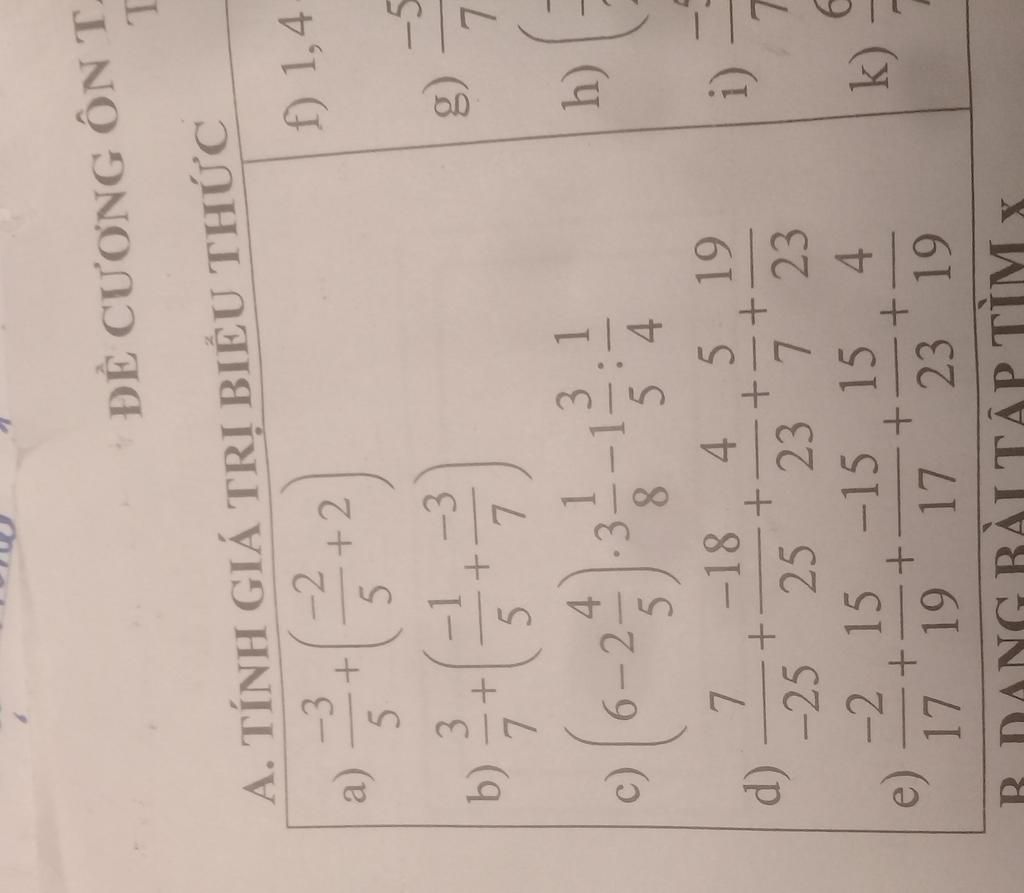 ĐỀ CƯƠNG ÔN T
A. TÍNH GIÁ TRỊ BIỂU THỨC
a) -3/5 + (-2/5 + 2)
b) 3/7 + (-1/5 + -3/7)
c) (6 - 2 4/5) . 3 1/8 - 1 3/5 : 1/4
d) 7/-25 + -18/25 + 4/23 + 5/7 + 19/23
e) -2/17 + 15/19 + -15/17 + 15/23 + 4/19
f) 1,4
g) -5/7
h) (
i)
k)
B. DẠNG BÀI TẬP TÌM X